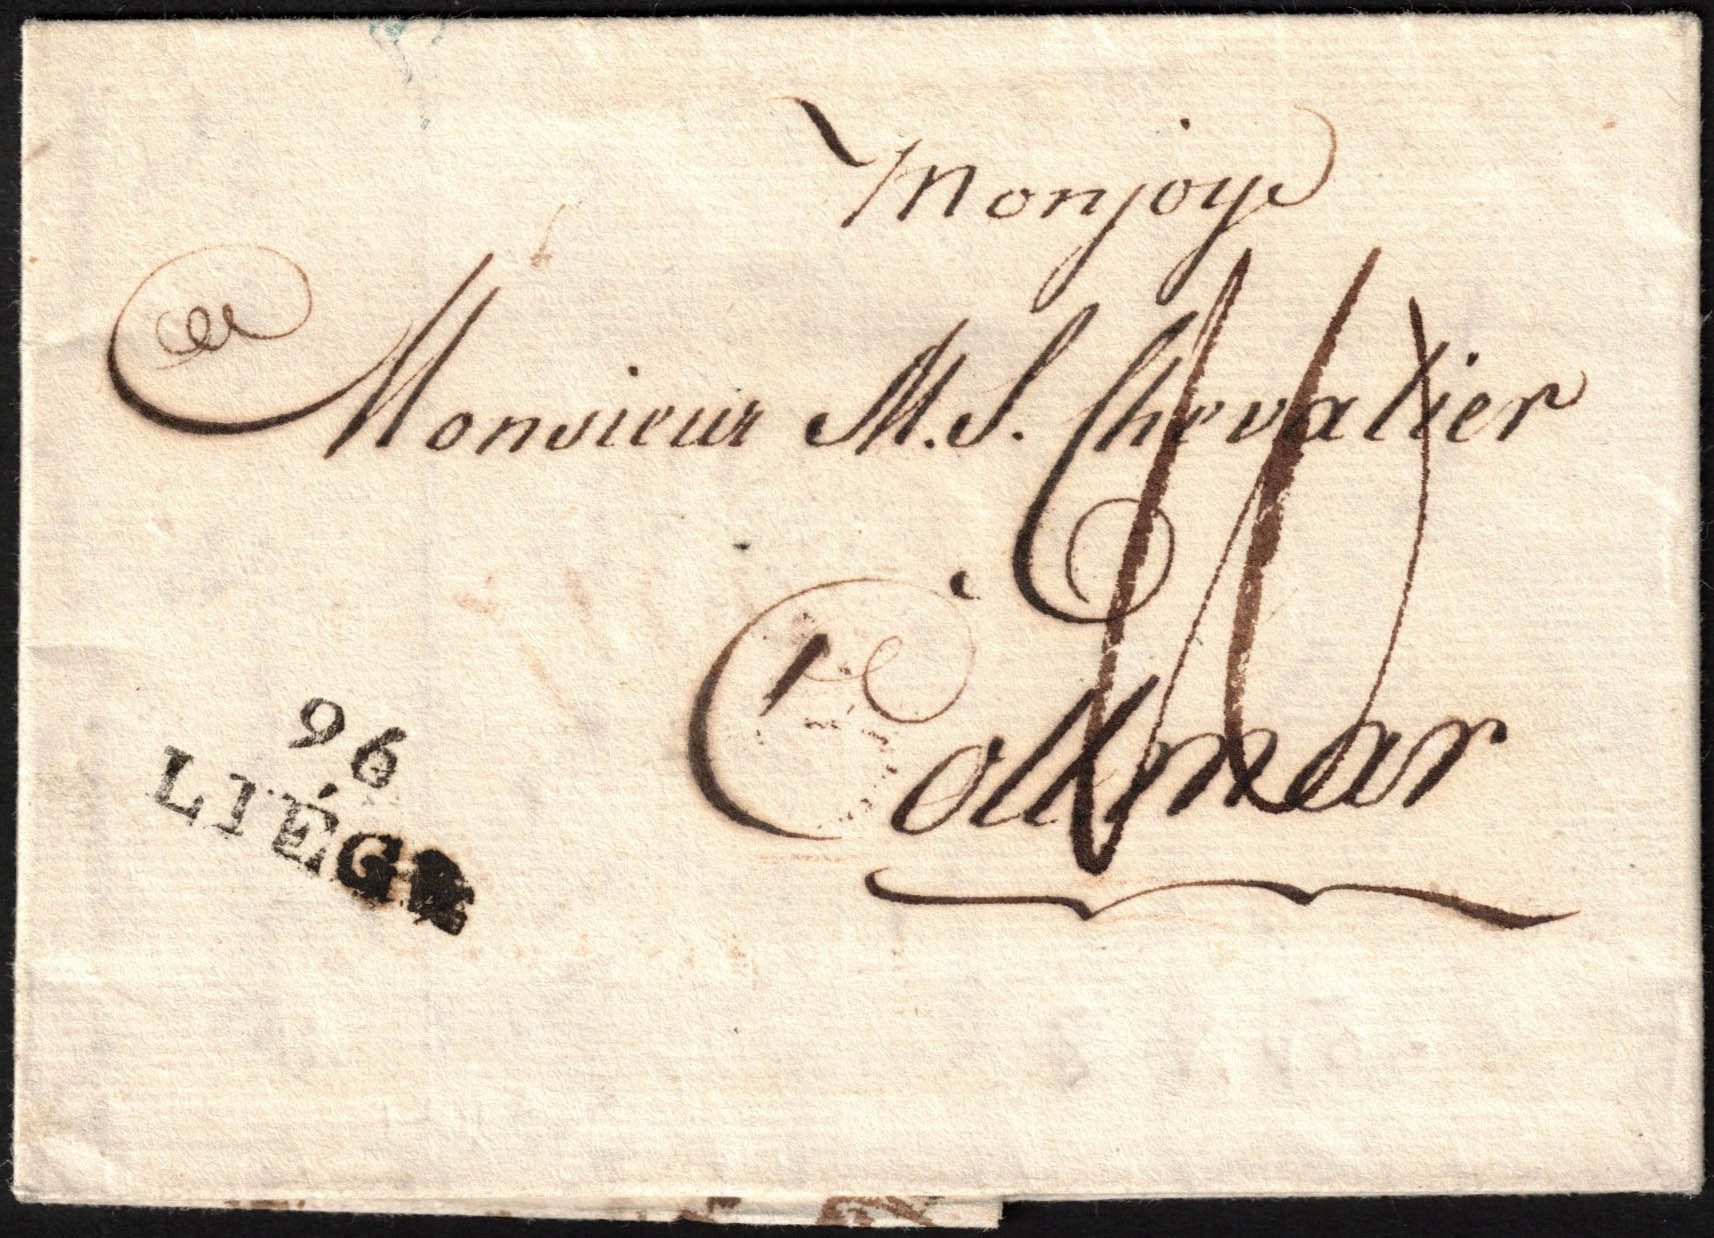 Monjoye
Monsieur M. S. Chevalier
à
Collmar
96
LIÉGE